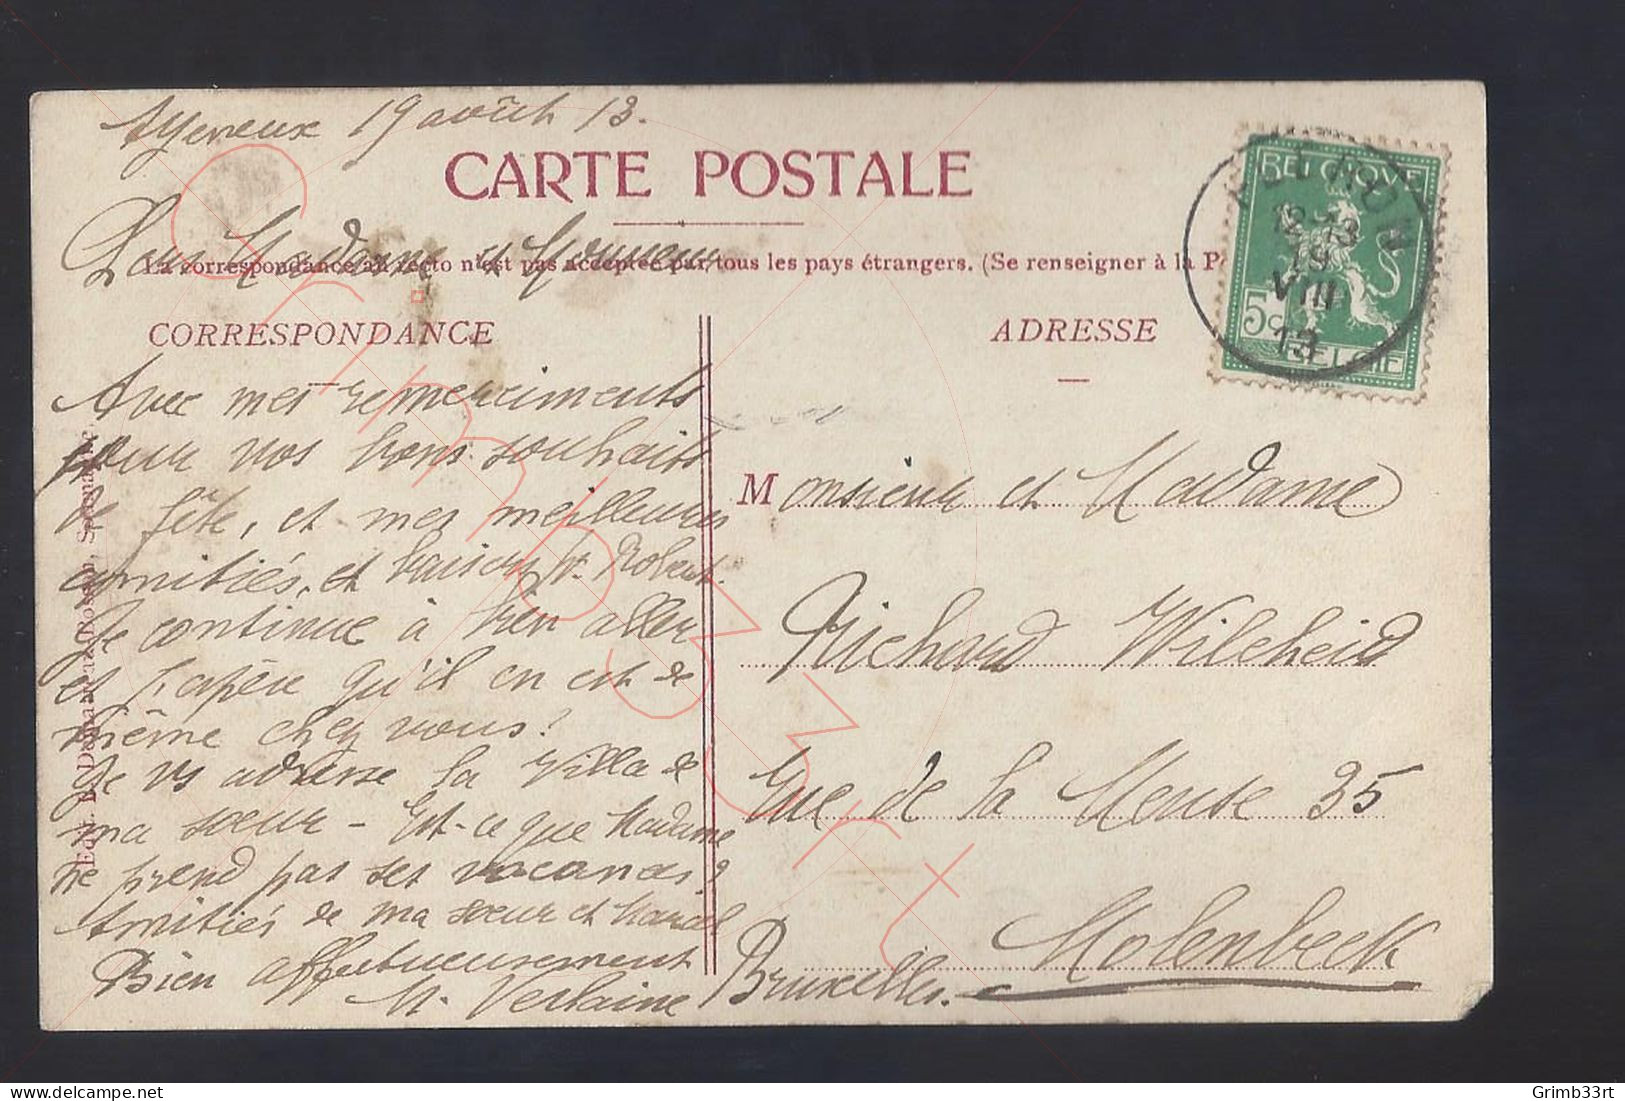 Ayeneux 19 août 13.
CARTE POSTALE
Madame et Monsieur
La correspondance au recto n'est pas acceptée par tous les pays étrangers. (Se renseigner à la P
CORRESPONDANCE
ADRESSE
BELGIQUE
12-13
19
VIII
13
5c
BELGIË
Avec mes remerciments
pour vos bons souhaits
de fête, et mes meilleures
amitiés, et baisers pr. Robert.
Je continue à bien aller
et j'espère qu'il en est de
même chez vous?
Je vs adresse la Villa de
ma sœur - Est-ce que Madame
ne prend pas ses vacances?
Amitiés de ma sœur et Marcel
Bien affectueusement
M. Verlaine
Monsieur et Madame
Richard Wilcheid
Rue de la Meuse 35
Molenbeek
Bruxelles.
Grimb33rt
© Grimb33rt